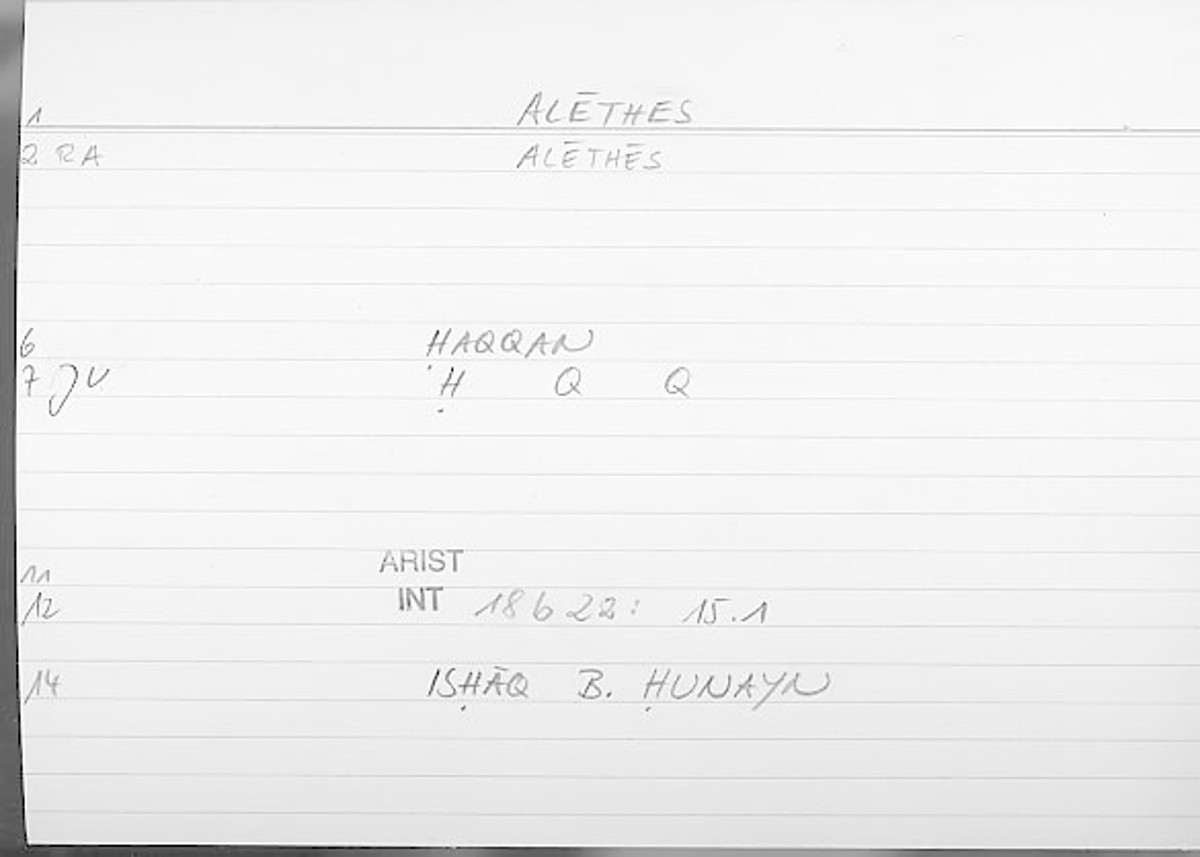 1 ALĒTHES
2 RA ALĒTHĒS
6 ḤAQQAN
7 JV Ḥ Q Q
11 ARIST
12 INT 18 b 22: 15.1
14 ISḤĀQ B. ḤUNAYN